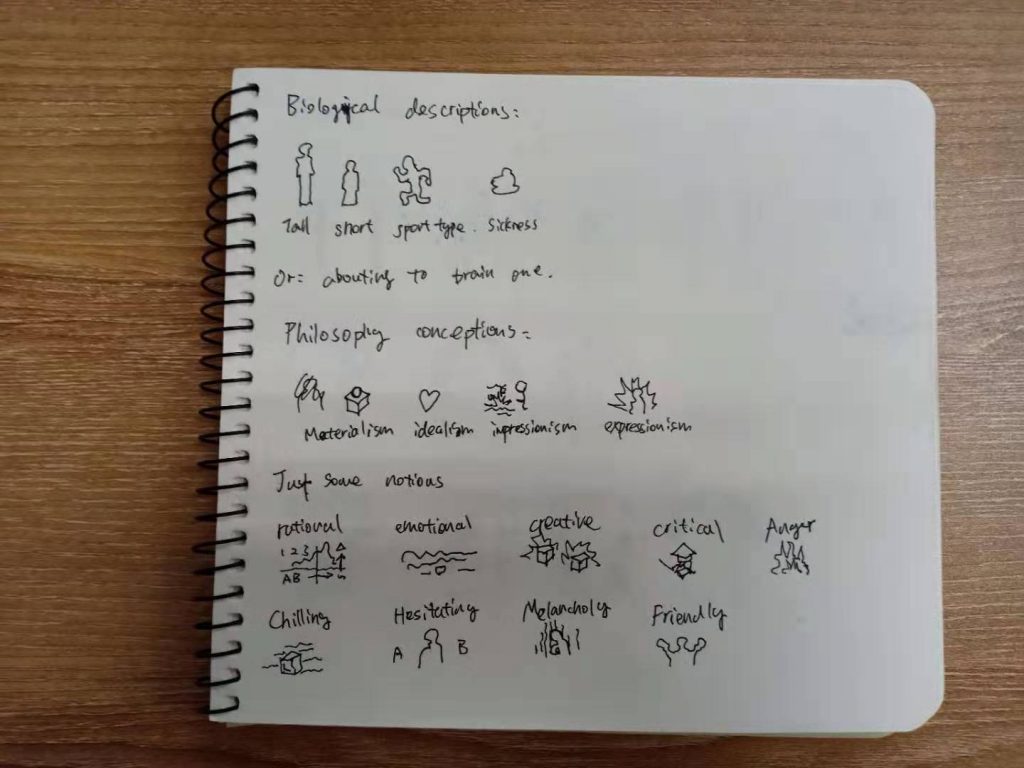 Biological descriptions:
Tall short sport type. Sickness
Or: abouting to train one.
Philosophy conceptions:
Materialism idealism impressionism expressionism
Just some notions
rational emotional creative critical Anger
1 2 3
A B
Chilling Hesitating Melancholy Friendly
A B